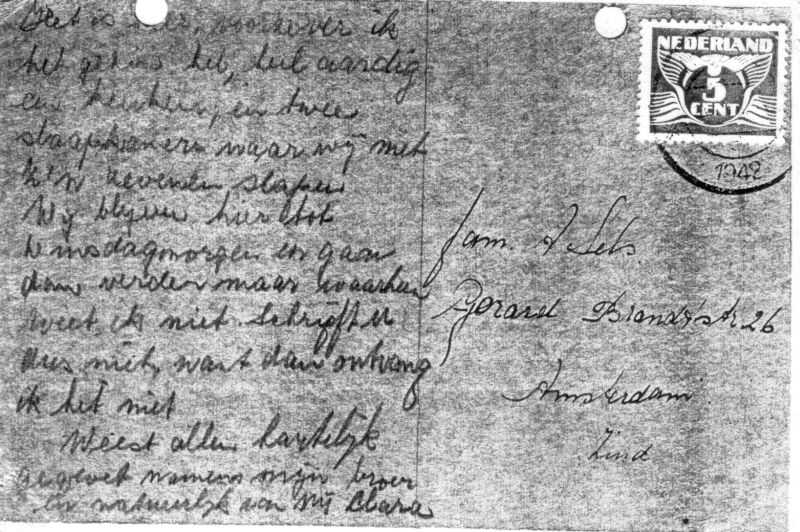 Het is hier, voorzover ik
het gezien heb, heel aardig
een keuken, en twee
slaapkamers waar wij met
z'n zevenen slapen
Wij blijven hier tot
Dinsdagmorgen en gaan
dan verder maar waarheen
weet ik niet. Schrijft U
dus niet, want dan ontvang
ik het niet
Weest allen hartelijk
gegroet namens mijn broer
en natuurlijk van mij Clara
NEDERLAND
5
CENT
1942
Fam. A Sels.
Gerard Brandtstr 26
Amsterdam
Zuid